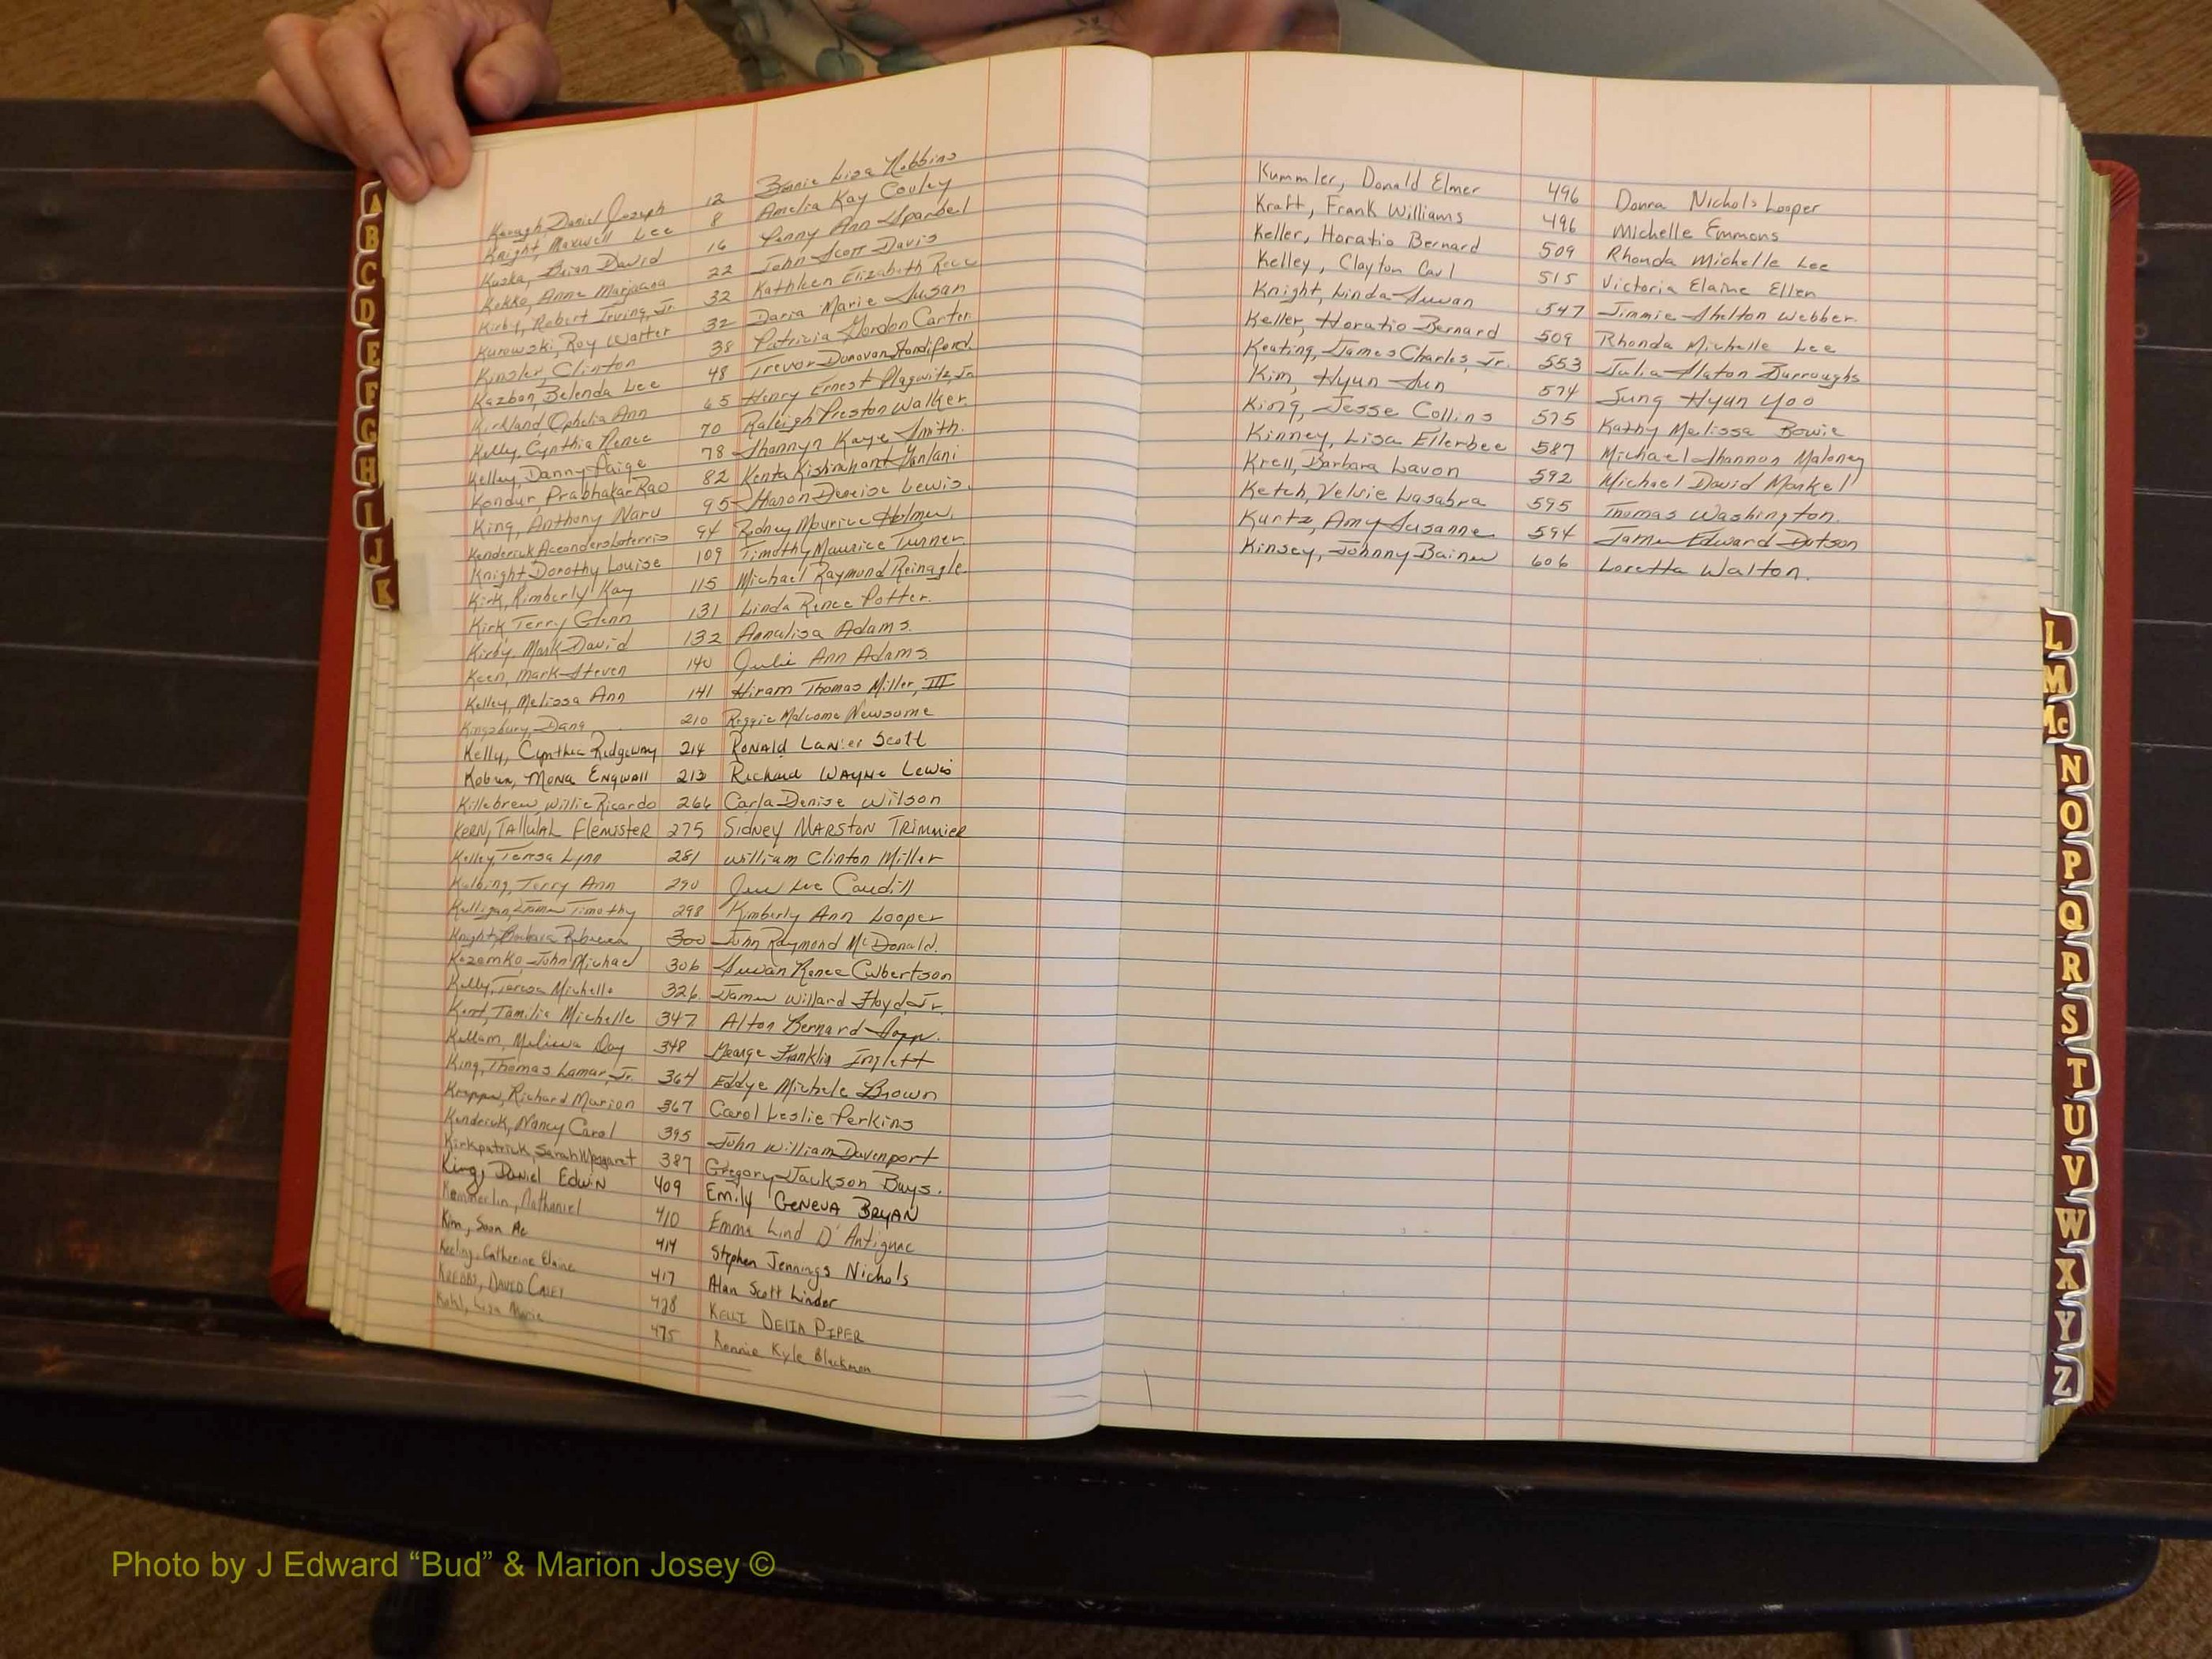 Kavagh, Daniel Joseph 12 Bonnie Lisa Robbins
Knight, Maxwell Lee 8 Amelia Kay Couley
Kuska, Brian David 16 Penny Ann
Kokko, Anne Marjaana 22 John Scott Davis
Kirby, Robert Irving, Jr. 32 Kathleen Elizabeth
Kurowski, Roy Walter 32 Daria Marie Susan
Kinsler, Clinton 38 Patricia Gordon Carter
Kazbon, Belenda Lee 48 Trevor Donovan Standiford
Kirkland Ophelia Ann 65 Henry Ernest Plagwitz, Jr.
Kelly, Cynthia Renee 70 Raleigh Preston Walker.
Kelley, Danny Paige 78 Shannyn Kaye Smith.
Kondur, Prabhakar Rao 82
King, Anthony Naru 95 Sharon Denise Lewis.
Kenderick 94 Rodney Maurice Holmes.
Knight, Dorothy Louise 109 Timothy Maurice Turner.
Kirk, Kimberly Kay 115 Michael Raymond Reinagle.
Kirk, Terry Glenn 131 Linda Renee Potter.
Kirby, Mark David 132 Annalisa Adams.
Keen, Mark Steven 140 Julie Ann Adams.
Kelley, Melissa Ann 141 Hiram Thomas Miller, III
Kingsbury, Dana 210 Reggie Malcome Newsome
Kelly, Cynthia Ridgeway 214 RONALD LANier Scott
Kobus, MONA ENgwall 213 Richard WAYNe Lewis
Killebrew, Willie Ricardo 266 Carla Denise Wilson
KERN, TAllulAh FlemisteR 275 SidNey MARSTON TRiMMieR
Kelley, Teresa Lynn 281 William Clinton Miller
Kulbing, Terry Ann 290 Lee Caudill
Kulligan, James Timothy 298 Kimberly Ann Looper
Knight, Barbara Rebecca 300 John Raymond McDonald.
Kozemko, John Michael 306 Susan Renee Culbertson
Kelly, Teresa Michelle 326. James Willard Floyd, Jr.
Kent, Tamilia Michelle 347 Alton Bernard Sapp.
Kellam, Melissa Day 348 George Franklin Inglett
King, Thomas Lamar, Jr. 364 Eddye Michele Brown
Richard Marion 367 Carol Leslie Perkins
Kendrick, Nancy Carol 395 John William Davenport
Kirkpatrick, Sarah Margaret 387 Gregory Jackson Bays.
King, DANiel EdwiN 409 Emily GeNeVA BRYAN
Kemmerlin, Nathaniel 410 Emma Lind D'Antignac
Kim, Soon Ae 414 Stephen Jennings Nichols
Keeling, Catherine Elaine 417 Alan Scott Linder
KREBBS, DAVID CASEY 428 KELLI DELIA PIPER
Kohl, Lisa Marie 475 Ronnie Kyle Blackmon
Kummler, Donald Elmer 496 Donna Nichols Looper
Kratt, Frank Williams 496 Michelle Emmons
Keller, Horatio Bernard 509 Rhonda Michelle Lee
Kelley, Clayton Carl 515 Victoria Elaine Ellen
Knight, Linda Susan 547 Jimmie Shelton Webber.
Keller, Horatio Bernard 509 Rhonda Michelle Lee
Keating, James Charles, Jr. 553 Julia Slaton Burroughs
Kim, Hyun Sun 574 Sung Hyun Yoo
King, Jesse Collins 575 Kathy Melissa Bowie
Kinney, Lisa Ellerbee 587 Michael Shannon Maloney
Krell, Barbara Lavon 592 Michael David Monkel
Ketch, Velvie Lasabra 595 Thomas Washington.
Kurtz, Amy Susanne 594 James Edward Dotson
Kinsey, Johnny Baines 606 Loretta Walton.
A
B
C
D
E
F
G
H
I
J
K
L
M
Mc
N
O
P
Q
R
S
T
U
V
W
X
Y
Z
Photo by J Edward “Bud” & Marion Josey ©